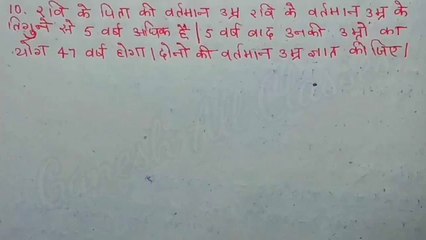 10. रवि के पिता की वर्तमान उम्र रवि के वर्तमान उम्र के
तिगुने से 5 वर्ष अधिक है। 5 वर्ष बाद उनकी उम्रों का
योग 47 वर्ष होगा। दोनों की वर्तमान उम्र ज्ञात कीजिए।